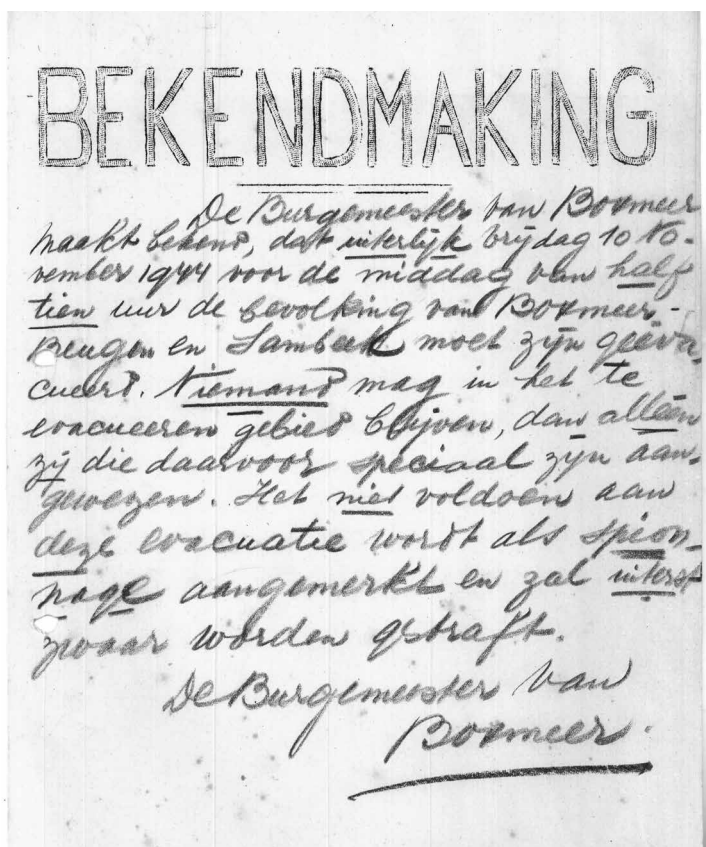 BEKENDMAKING
De Burgemeester van Boxmeer
maakt bekend, dat uiterlijk Vrijdag 10 No-
vember 1944 voor de middag van half
tien uur de bevolking van Boxmeer-
Beugen en Sambeek moet zijn geëva-
cueerd. Niemand mag in het te
evacueeren gebied blijven, dan alléén
zij die daarvoor speciaal zijn aan-
gewezen. Het niet voldoen aan
deze evacuatie wordt als spion-
nage aangemerkt en zal uiterst
zwaar worden gestraft.
De Burgemeester van
Boxmeer.